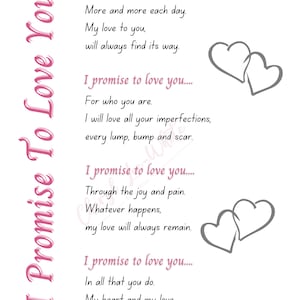 I Promise To Love You
More and more each day.
My love to you,
will always find its way.
I promise to love you....
For who you are.
I will love all your imperfections,
every lump, bump and scar.
I promise to love you....
Through the joy and pain.
Whatever happens,
my love will always remain.
I promise to love you....
In all that you do.
My heart and my love